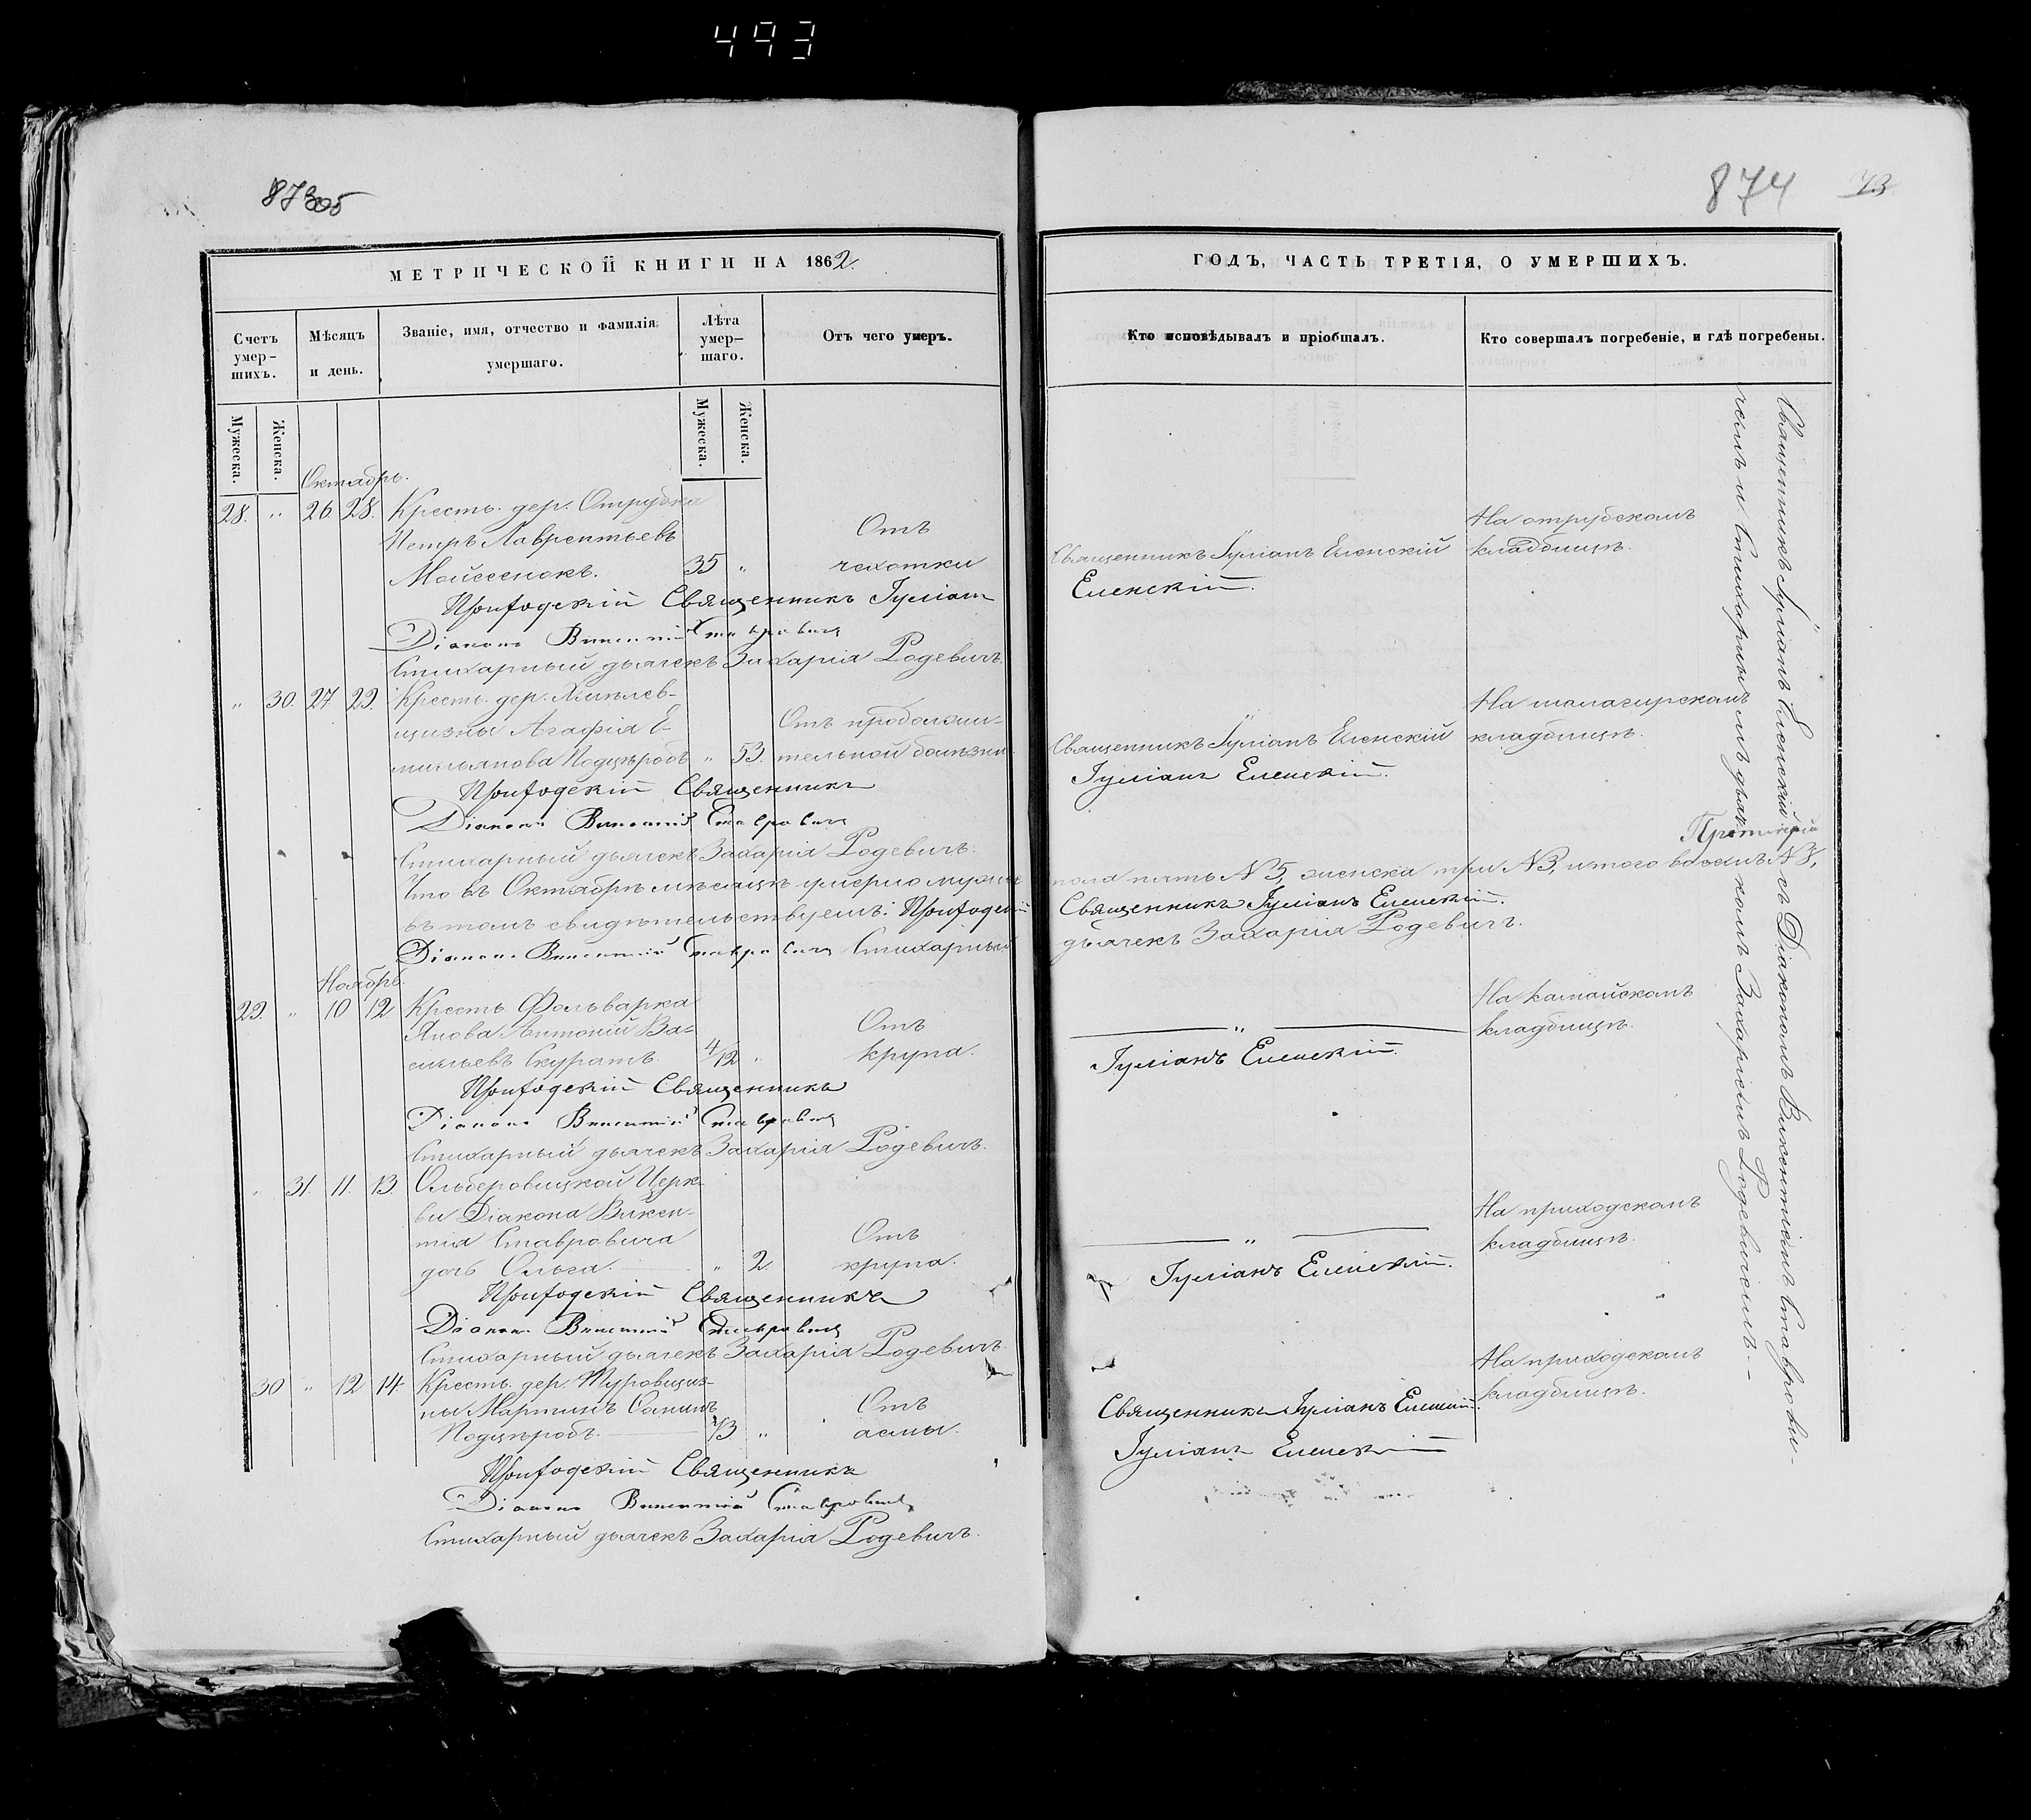 493
873об
874
73
МЕТРИЧЕСКОЙ КНИГИ НА 1862.
Счетъ умер-шихъ.
Мѣсяцъ и день.
Званіе, имя, отчество и фамилія умершаго.
Лѣта умер-шаго.
Отъ чего умеръ.
Мужеска.
Женска.
Мужеска.
Женска.
Октябрь.
28. " 26. 28. Крестъ. дер. Отрубка
Петръ Лаврентьевъ
Отъ
Мойсеенокъ. 35 " чахотки
Приходскій Священникъ Іуліан
Діаконъ Викентій Ставровичъ
Стихарный дьячекъ Захарія Родевичъ.
" 30. 27 29. Крестъ. дер.
щизны Агафія Е-
Отъ продолжи-
мильянова Подцѣробъ " 53. тельной болѣзни.
Приходскій Священникъ
Діаконъ Викентій Ставровичъ
Стихарный дьячекъ Захарія Родевичъ.
Что въ Октябрѣ мѣсяцѣ умерло мужска
въ томъ свидѣтельствуемъ: Приходскій
Діаконъ Викентій Ставровичъ Стихарный
Ноябрь.
29. " 10 12 Крестъ Фольварка
Янова Антоній Ва-
Отъ
сильевъ Скуратъ. 4/12 " крупа.
Приходскій Священникъ
Діаконъ Викентій Ставровичъ
Стихарный дьячекъ Захарія Родевичъ.
" 31. 11. 13. Ольберовицкой Церк-
ви Діакона Викен-
тія Ставровича
Отъ
дочь Ольга. " 2. крупа.
Приходскій Священникъ
Діаконъ Викентій Ставровичъ
Стихарный дьячекъ Захарія Родевичъ.
30 " 12 14. Крестъ. дер. Туровщиз-
ны Мартинъ
Отъ
Подцѣробъ. "
Приходскій Священникъ
Діаконъ Викентій Ставровичъ
Стихарный дьячекъ Захарія Родевичъ.
ГОДЪ, ЧАСТЬ ТРЕТІЯ, О УМЕРШИХЪ.
Кто исповѣдывалъ и пріобщалъ.
Кто совершалъ погребеніе, и гдѣ погребены.
На отрубскомъ
Священникъ Іуліанъ Еленскій кладбищѣ.
Еленскій.
На
Священникъ Іуліанъ Еленскій кладбищѣ.
Іуліанъ Еленскій.
пола пять №5, женска три №3, итого восемь №8,
Священникъ Іуліанъ Еленскій.
дьячекъ Захарія Родевичъ.
На
" кладбищѣ.
Іуліанъ Еленскій.
На приходскомъ
" кладбищѣ.
Іуліанъ Еленскій.
На приходскомъ
кладбищѣ.
Священникъ Іуліанъ Еленскій.
Іуліанъ Еленскій
Священникъ Іуліанъ Еленскій съ Діакономъ Викентіемъ Ставрови-
чемъ и Стихарнымъ дьячкомъ Захаріемъ Родевичемъ.